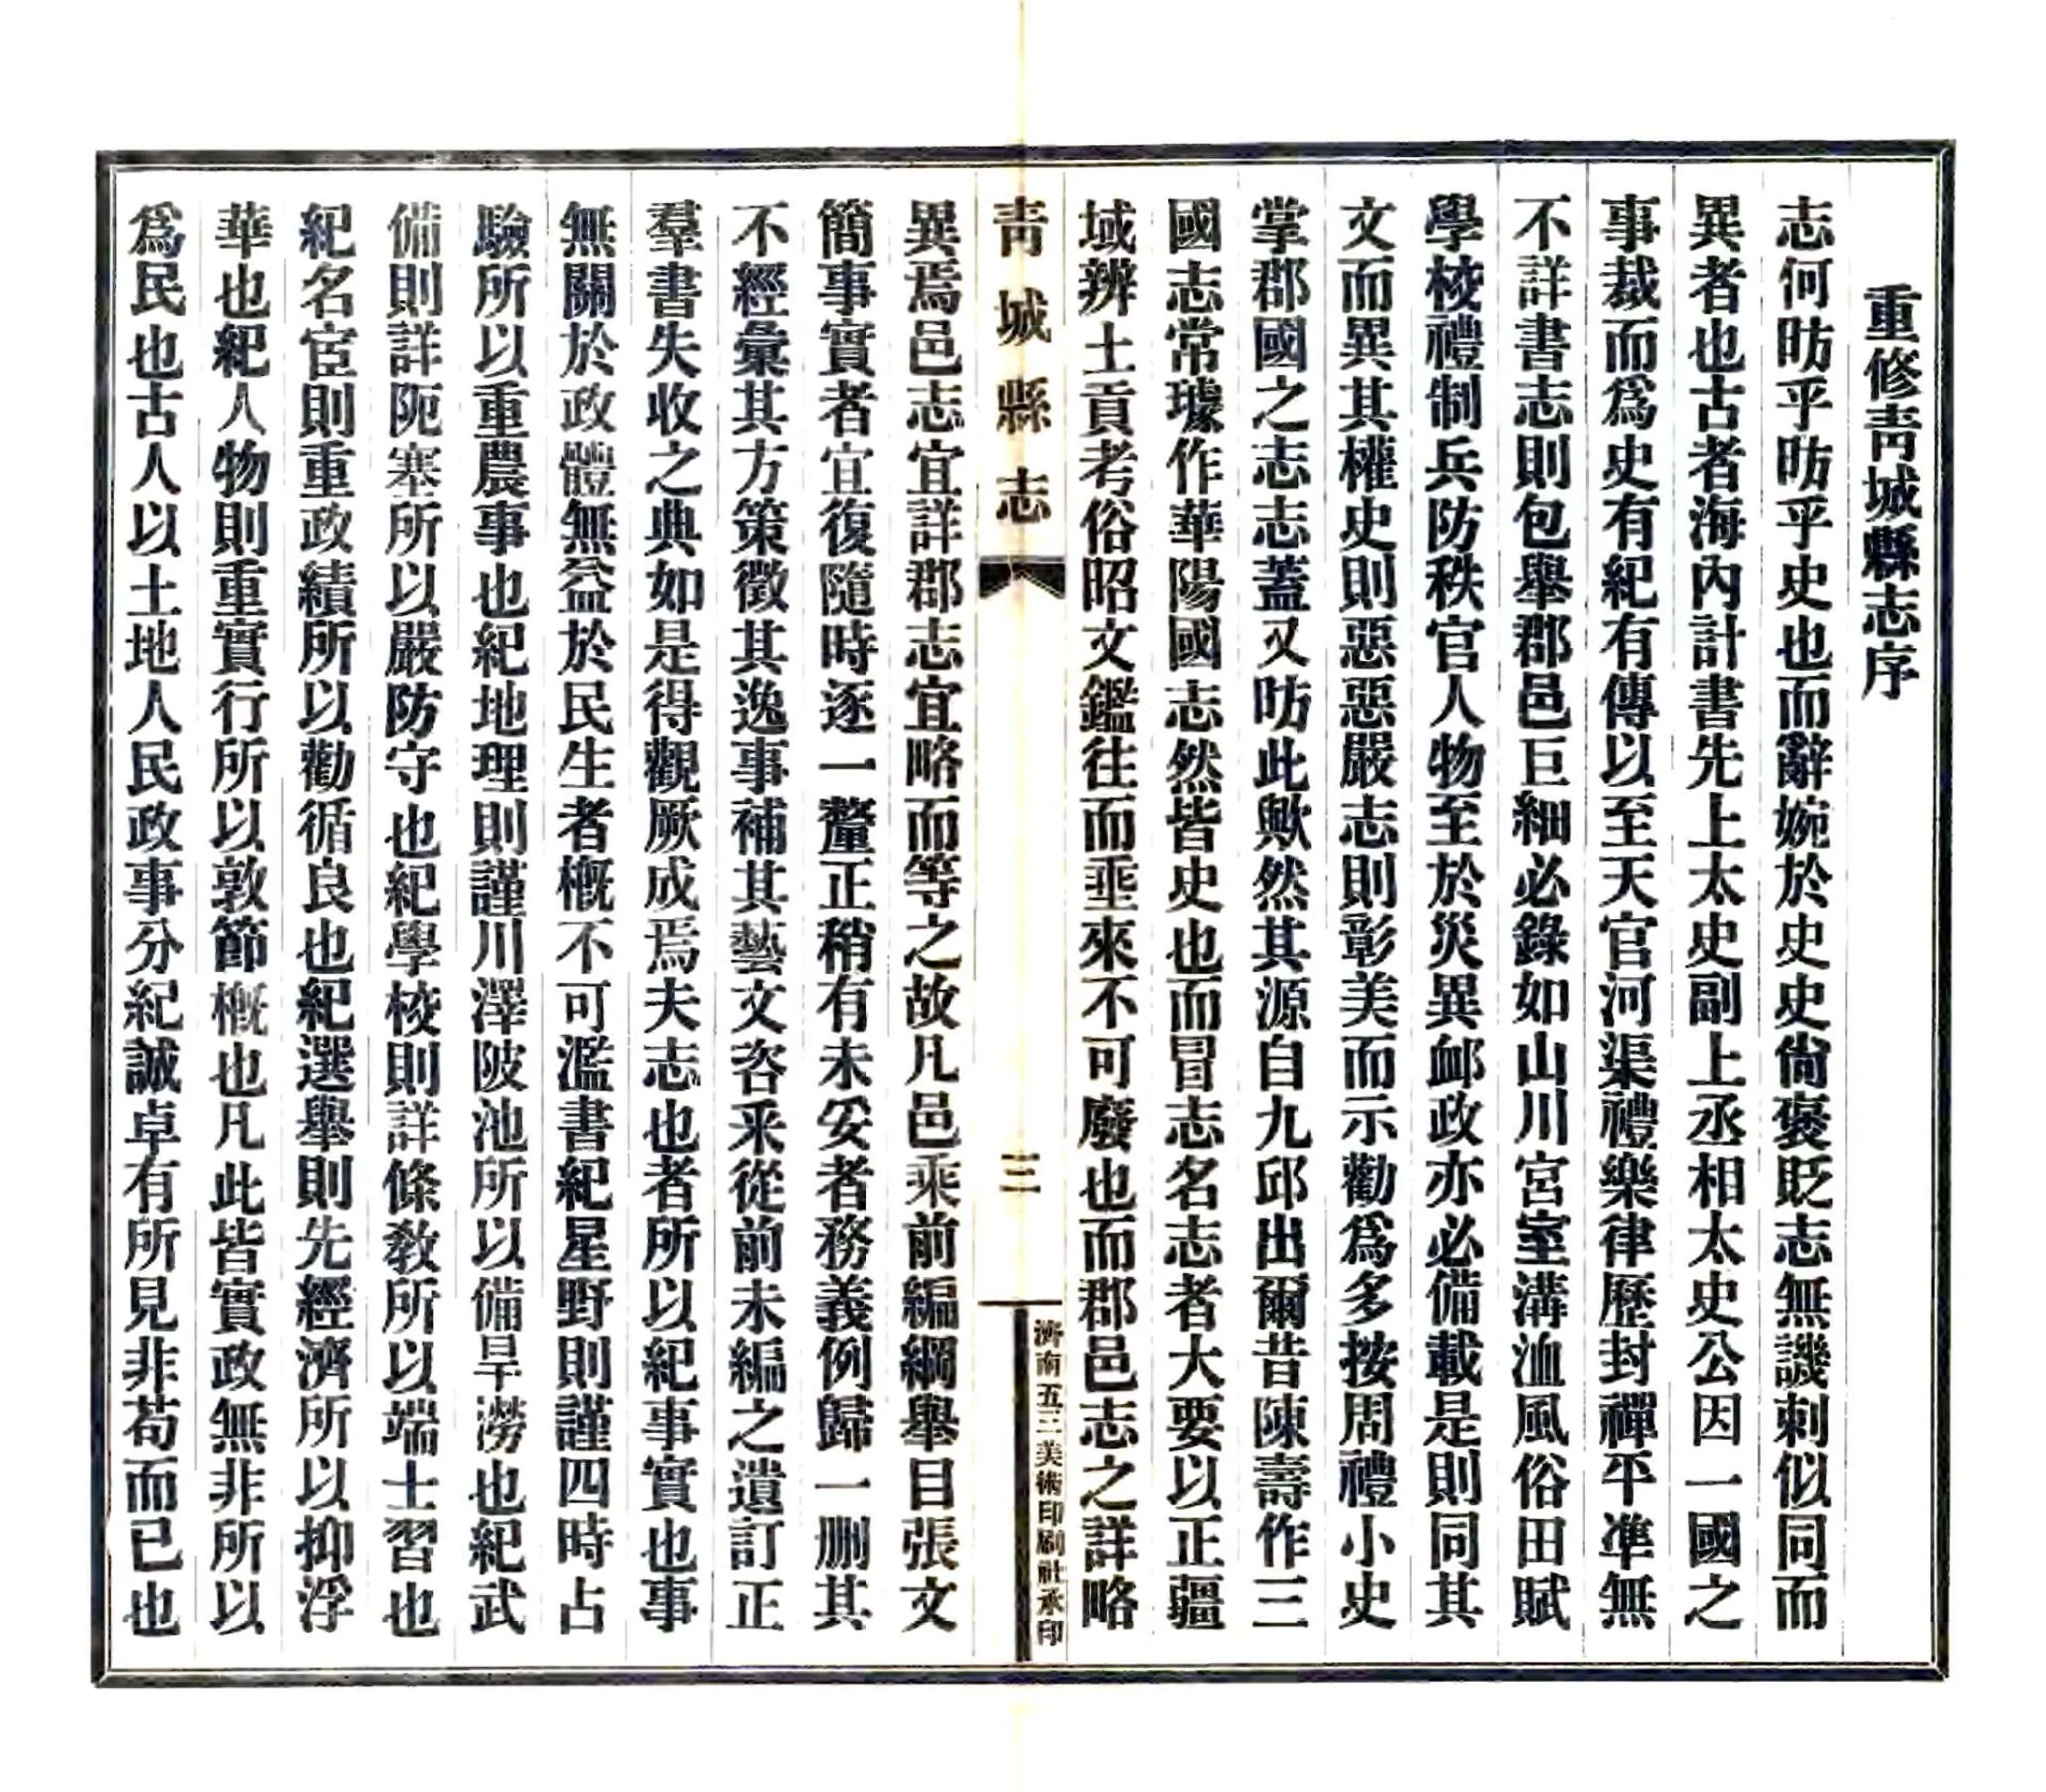 重修靑城縣志序
志何昉乎昉乎史也而辭婉於史史尙褒貶志無譏刺似同而
異者也古者海內計書先上太史副上丞相太史公因一國之
事裁而爲史有紀有傳以至天官河渠禮樂律歷封禪平準無
不詳書志則包舉郡邑巨細必錄如山川宮室溝洫風俗田賦
學校禮制兵防秩官人物至於災異卹政亦必備載是則同其
文而異其權史則惡惡嚴志則彰美而示勸爲多按周禮小史
掌郡國之志志蓋又昉此歟然其源自九邱出爾昔陳壽作三
國志常璩作華陽國志然皆史也而冒志名志者大要以正疆
域辨土貢考俗昭文鑑往而垂來不可廢也而郡邑志之詳略
靑城縣志
三
濟南五三美術印刷社承印
異焉邑志宜詳郡志宜略而等之故凡邑乘前編綱舉目張文
簡事實者宜復隨時逐一釐正稍有未妥者務義例歸一删其
不經彙其方策徵其逸事補其藝文咨釆從前未編之遺訂正
羣書失收之典如是得觀厥成焉夫志也者所以紀事實也事
無關於政體無益於民生者槪不可濫書紀星野則謹四時占
驗所以重農事也紀地理則謹川澤陂池所以備旱澇也紀武
備則詳阨塞所以嚴防守也紀學校則詳條敎所以端士習也
紀名宦則重政績所以勸循良也紀選舉則先經濟所以抑浮
華也紀人物則重實行所以敦節槪也凡此皆實政無非所以
爲民也古人以土地人民政事分紀誠卓有所見非苟而已也